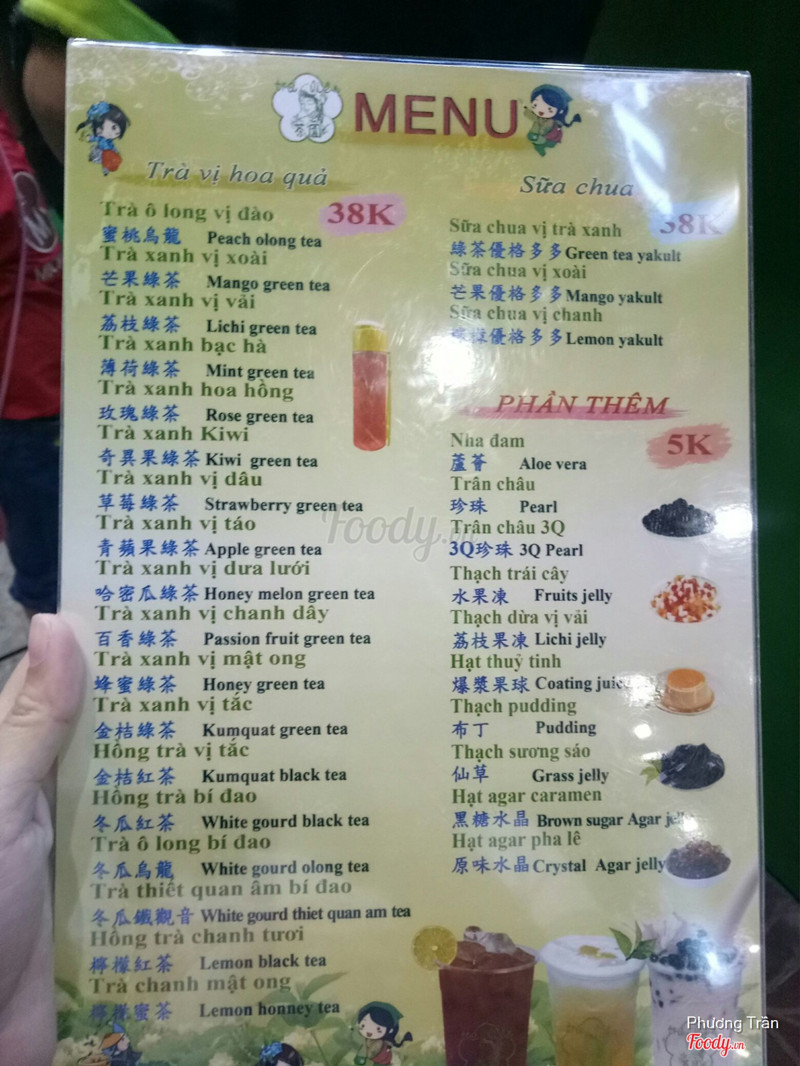 MENU
Trà vị hoa quả
38K
Trà ô long vị đào
蜜桃烏龍 Peach olong tea
Trà xanh vị xoài
芒果綠茶 Mango green tea
Trà xanh vị vải
荔枝綠茶 Lichi green tea
Trà xanh bạc hà
薄荷綠茶 Mint green tea
Trà xanh hoa hồng
玫瑰綠茶 Rose green tea
Trà xanh Kiwi
奇異果綠茶 Kiwi green tea
Trà xanh vị dâu
草莓綠茶 Strawberry green tea
Trà xanh vị táo
青蘋果綠茶 Apple green tea
Trà xanh vị dưa lưới
哈密瓜綠茶 Honey melon green tea
Trà xanh vị chanh dây
百香綠茶 Passion fruit green tea
Trà xanh vị mật ong
蜂蜜綠茶 Honey green tea
Trà xanh vị tắc
金桔綠茶 Kumquat green tea
Hồng trà vị tắc
金桔紅茶 Kumquat black tea
Hồng trà bí đao
冬瓜紅茶 White gourd black tea
Trà ô long bí đao
冬瓜烏龍 White gourd olong tea
Trà thiết quan âm bí đao
冬瓜鐵觀音 White gourd thiet quan am tea
Hồng trà chanh tươi
檸檬紅茶 Lemon black tea
Trà chanh mật ong
檸檬蜜茶 Lemon honney tea
Sữa chua
38K
Sữa chua vị trà xanh
綠茶優格多多 Green tea yakult
Sữa chua vị xoài
芒果優格多多 Mango yakult
Sữa chua vị chanh
檸檬優格多多 Lemon yakult
PHẦN THÊM
5K
Nha đam
蘆薈 Aloe vera
Trân châu
珍珠 Pearl
Trân châu 3Q
3Q珍珠 3Q Pearl
Thạch trái cây
水果凍 Fruits jelly
Thạch dừa vị vải
荔枝果凍 Lichi jelly
Hạt thuỷ tinh
爆漿果球 Coating juice
Thạch pudding
布丁 Pudding
Thạch sương sáo
仙草 Grass jelly
Hạt agar caramen
黑糖水晶 Brown sugar Agar jelly
Hạt agar pha lê
原味水晶 Crystal Agar jelly
Foody.vn
Phương Trần
Foody.vn